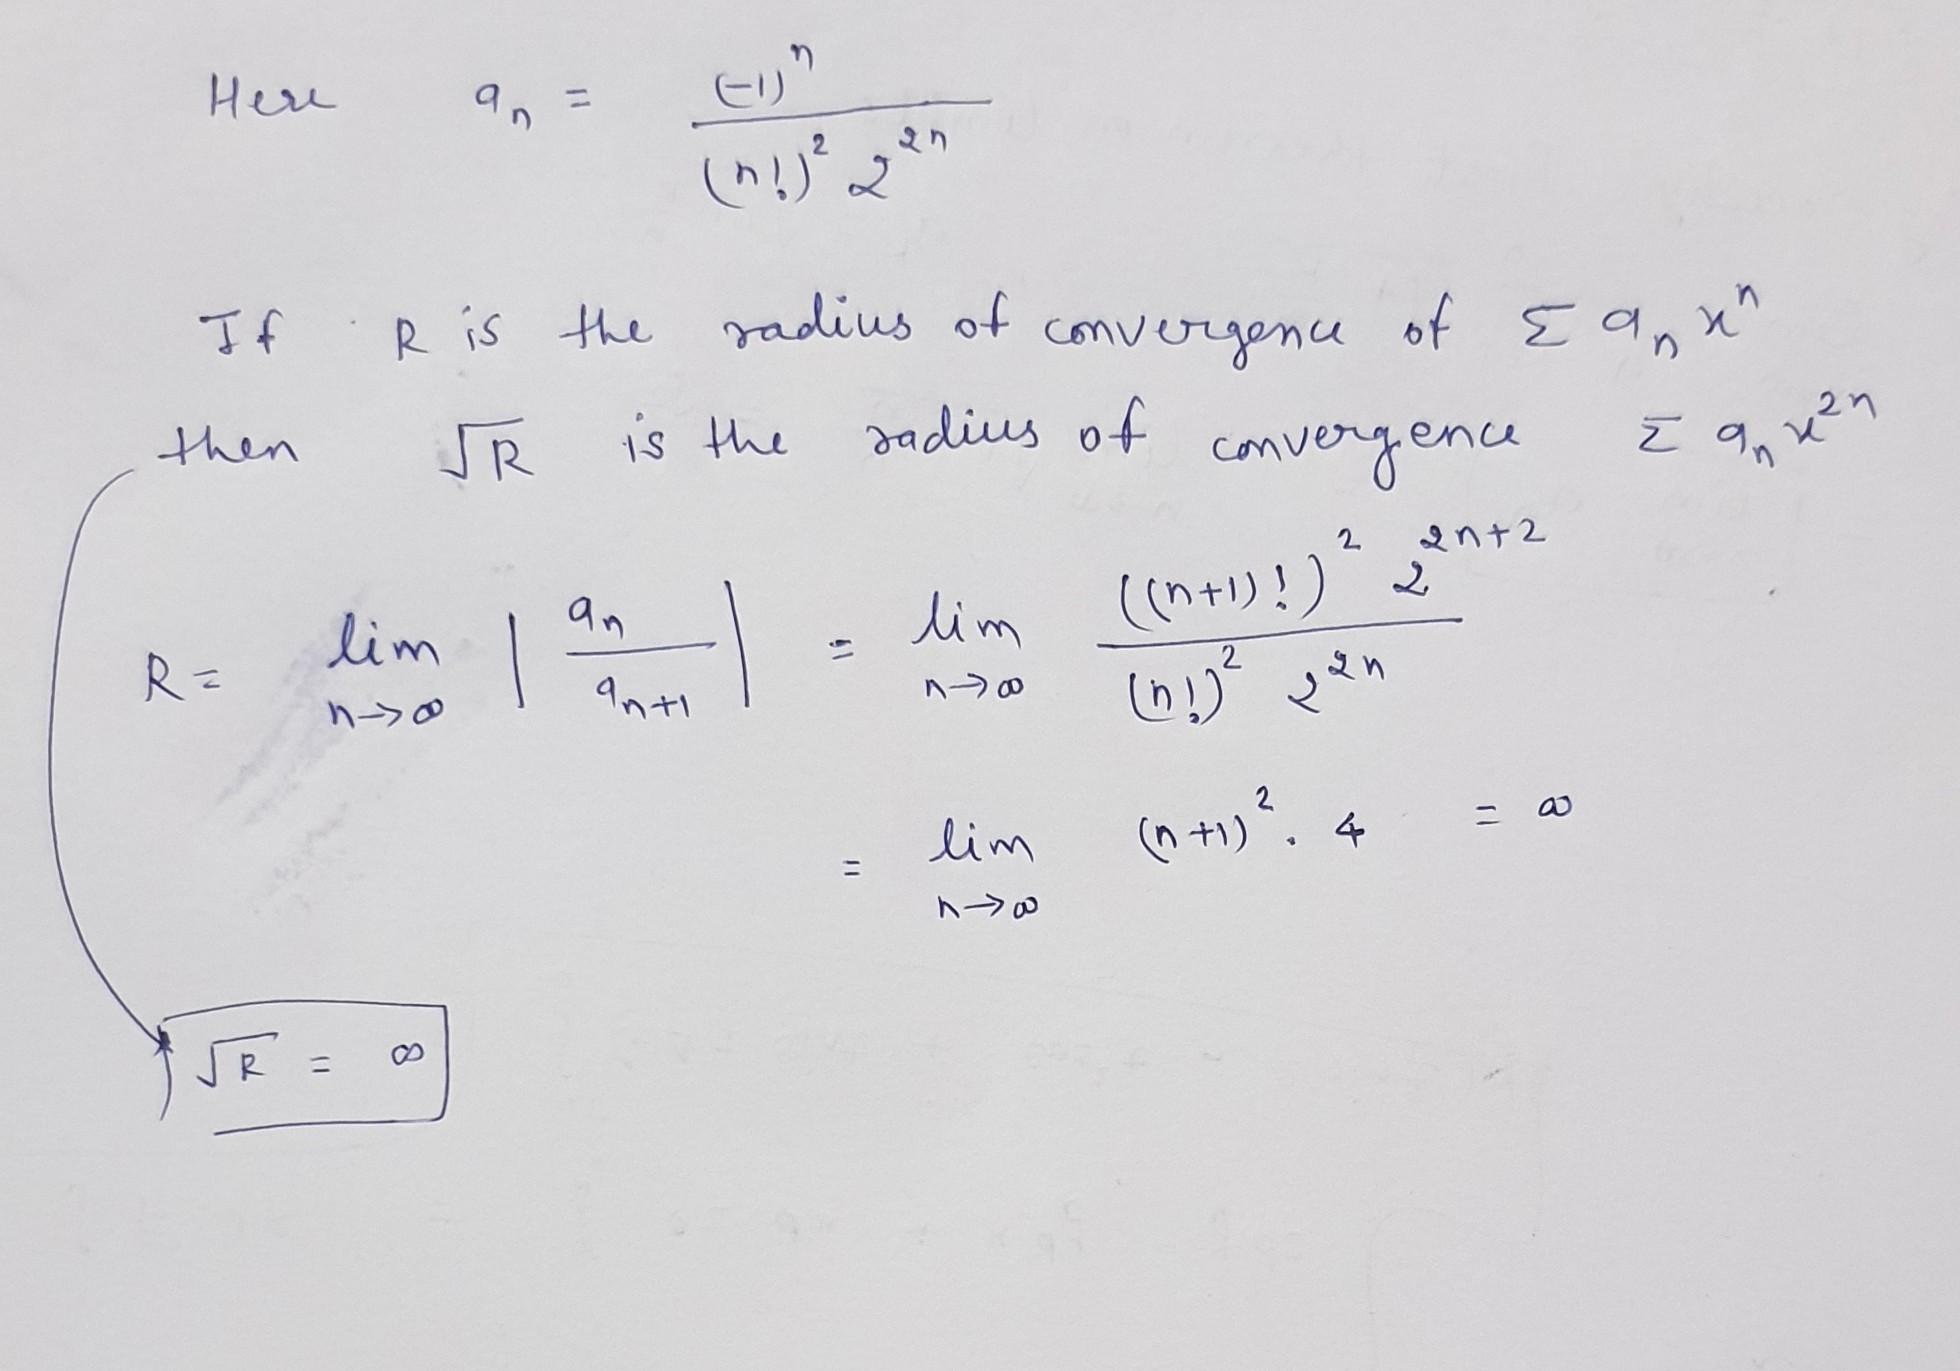 Here aₙ = (-1)ⁿ / (n!)² 2²ⁿ
If R is the radius of convergence of Σ aₙ xⁿ
then √R is the radius of convergence Σ aₙ x²ⁿ
R = lim n→∞ | aₙ / aₙ₊₁ | = lim n→∞ ((n+1)!)² 2²ⁿ⁺² / (n!)² 2²ⁿ
= lim n→∞ (n+1)² . 4 = ∞
√R = ∞